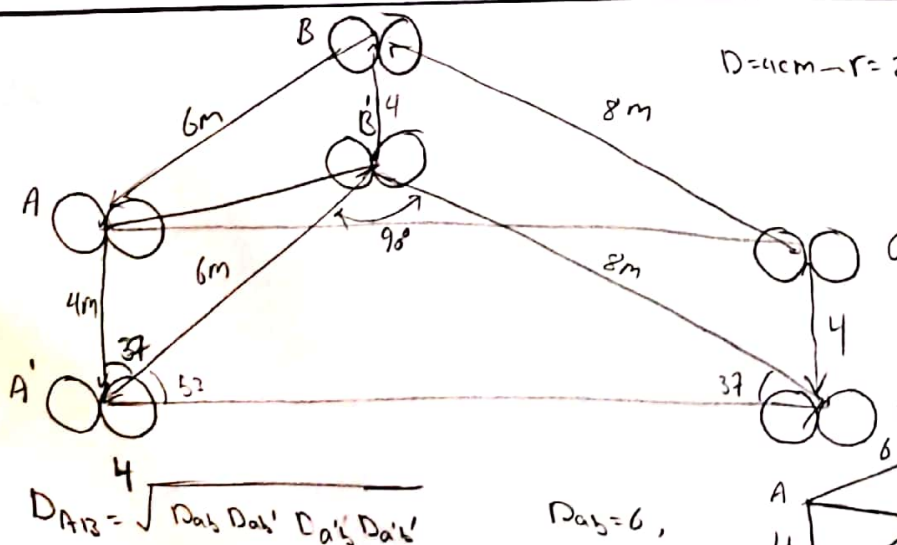 B
D=4cm - r=
6m
B' 4
8m
A
90°
6m
8m
4m
4
37
A'
53
37
4
D_AB = √ Dab Dab' Da'b Da'b'
Dab=6,
6
A